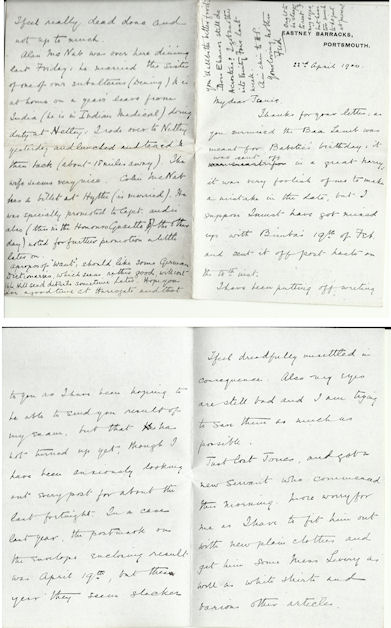 EASTNEY BARRACKS,
PORTSMOUTH.
22nd April 1900.
My dear
Thanks for your letter, as
you surmised the
meant for birthday, it
was sent off in a great hurry,
it was very foolish of me to make
a mistake in the date, but I
suppose I must have got mixed
up with 19th of Feb.
and sent it off post haste on
the
I have been putting off writing
to you as I have been hoping to
be able to send you result of
my exam, but that has
not turned up yet, though I
have been anxiously looking
out every post for about the
last fortnight. In a case
last year, the postmark on
the envelope enclosing result
was April 19th, but this
year they seem slacker
I feel dreadfully unsettled in
consequence. Also my eyes
are still bad and I am trying
to save them as much as
possible.
Just lost Jones, and got a
new servant who commenced
this morning. more worry for
me as I have to fit him out
with new plain clothes and
get him some Mess Livery as
well as white shirts and
various other articles.
I feel really, dead done and
not up to much.
Alan McNab was over here dining
last Friday; he married the sister
of one of our subalterns (Dening) & is
at home on a years leave from
India (he is in Indian Medical) doing
duty at Netley. I rode over to Netley
yesterday and lunched and
then back (about 18 miles away). The
wife seems very nice. Colin McNab
has a billet at Hythe (is married). He
was specially promoted to Capt. and is
also (this in the Honours Gazette of the other
day) noted for further promotion a little
later on.
Apropos of 'wants', should like some German
Dictionaries, which seem rather good, will
send details some time later. Hope you
a good time at Harrogate and that
you'll all be the better for it.